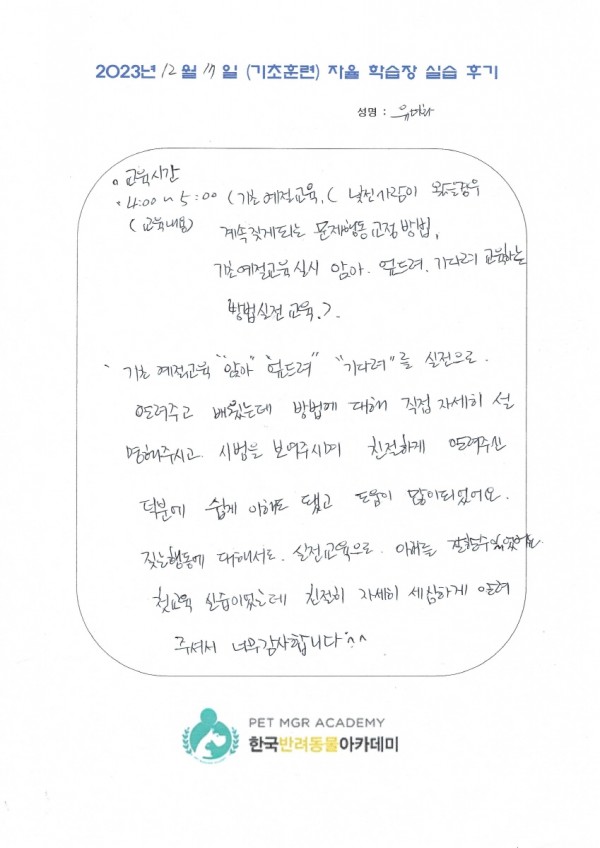 2023년 12월 17일 (기초훈련) 자율 학습장 실습 후기
성명 : 유미라
교육시간
4:00 ~ 5:00 (기초예절교육, ( 낯선사람이 왔을경우
(교육내용) 계속짖게되는 문제행동교정방법,
기초예절교육실시 앉아. 엎드려. 기다려 교육하는
방법실전교육.).
기초예절교육 "앉아" "엎드려" "기다려"를 실전으로.
알려주고 배웠는데 방법에 대해 직접 자세히 설
명해주시고. 시범을 보여주시며 친절하게 알려주신
덕분에 쉽게 이해도 됐고 도움이 많이되었어요.
짖는행동에 대해서도. 실전교육으로. 이해를 잘할수있었어요.
첫교육 실습이였는데 친절히 자세히 세심하게 알려
주셔서 너무감사합니다^^
PET MGR ACADEMY
한국반려동물아카데미